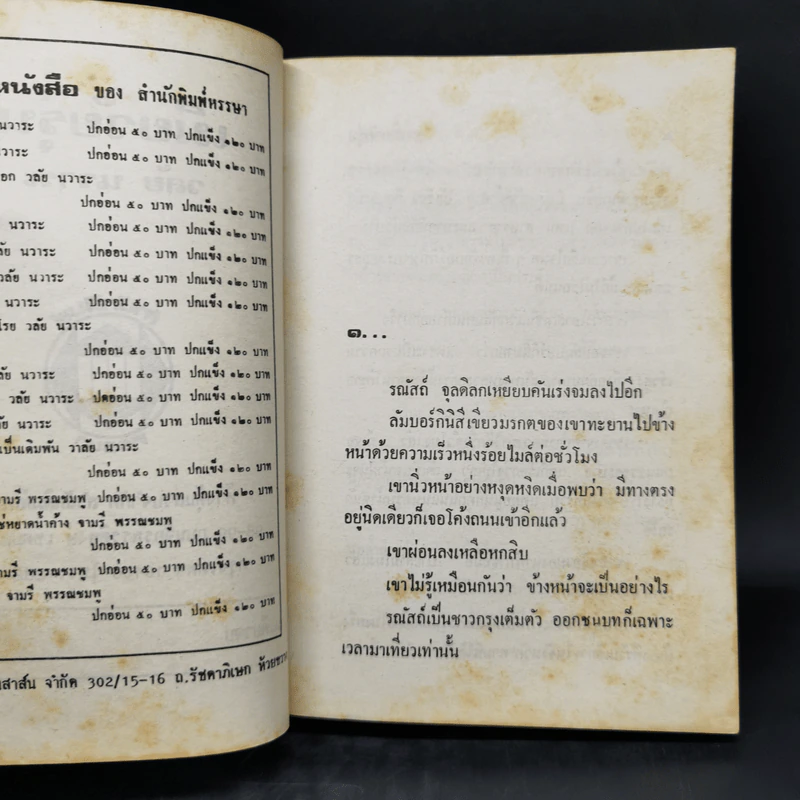 หนังสือ ของ สำนักพิมพ์หรรษา
นวาระ ปกอ่อน ๕๐ บาท ปกแข็ง ๑๒๐ บาท
วาระ ปกอ่อน ๕๐ บาท ปกแข็ง ๑๒๐ บาท
อก วลัย นวาระ
ปกอ่อน ๕๐ บาท ปกแข็ง ๑๒๐ บาท
นวาระ ปกอ่อน ๕๐ บาท ปกแข็ง ๑๒๐ บาท
ลัย นวาระ ปกอ่อน ๕๐ บาท ปกแข็ง ๑๒๐ บาท
วลัย นวาระ ปกอ่อน ๕๐ บาท ปกแข็ง ๑๒๐ บาท
นวาระ ปกอ่อน ๕๐ บาท ปกแข็ง ๑๒๐ บาท
โรย วลัย นวาระ
ปกอ่อน ๕๐ บาท ปกแข็ง ๑๒๐ บาท
ลัย นวาระ ปกอ่อน ๕๐ บาท ปกแข็ง ๑๒๐ บาท
วลัย นวาระ ปดอ่อน ๕๐ บาท ปกแข็ง ๑๒๐ บาท
ลัย นวาระ ปกอ่อน ๕๐ บาท ปกแข็ง ๑๒๐ บาท
เป็นเดิมพัน วาลัย นวาระ
ปกอ่อน ๕๐ บาท ปกแข็ง ๑๒๐ บาท
จามรี พรรณชมพู ปกอ่อน ๕๐ บาท ปกแข็ง ๑๒๐ บาท
หยาดน้ำค้าง จามรี พรรณชมพู
ปกอ่อน ๕๐ บาท ปกแข็ง ๑๒๐ บาท
ามรี พรรณชมพู ปกอ่อน ๕๐ บาท ปกแข็ง ๑๒๐ บาท
จามรี พรรณชมพู
ปกอ่อน ๕๐ บาท ปกแข็ง ๑๒๐ บาท
สาส์น จำกัด 302/15-16 ถ.รัชดาภิเษก ห้วยขวาง
๑...
รณัสถ์ จุลดิลกเหยียบคันเร่งจมลงไปอีก
ลัมบอร์กินิสีเขียวมรกตของเขาทะยานไปข้าง
หน้าด้วยความเร็วหนึ่งร้อยไมล์ต่อชั่วโมง
เขานิ่วหน้าอย่างหงุดหงิดเมื่อพบว่า มีทางตรง
อยู่นิดเดียวก็เจอโค้งถนนเข้าอีกแล้ว
เขาผ่อนลงเหลือหกสิบ
เขาไม่รู้เหมือนกันว่า ข้างหน้าจะเป็นอย่างไร
รณัสถ์เป็นชาวกรุงเต็มตัว ออกชนบทก็เฉพาะ
เวลามาเที่ยวเท่านั้น